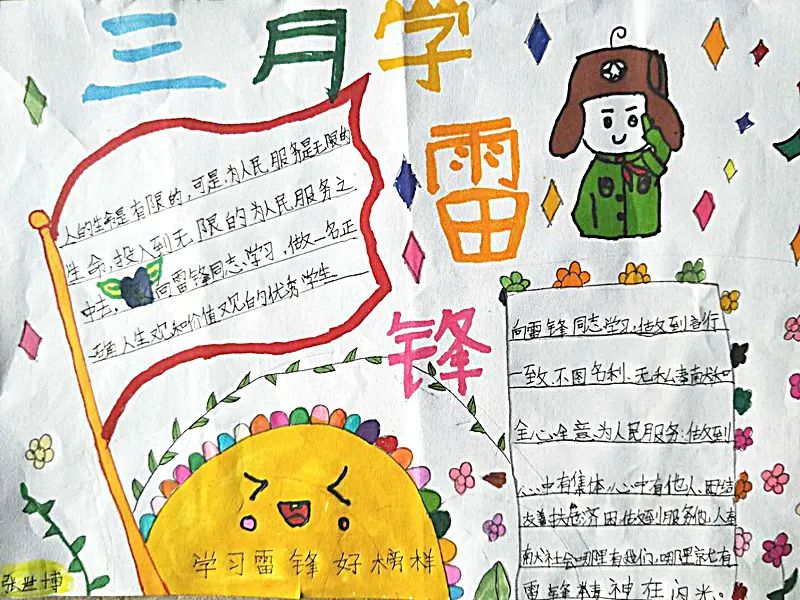 三月学
雷
锋
人的生命是有限的,可是,为人民服务是无限的
生命,投入到无限的为人民服务之
中去, 向雷锋同志学习,做一名正
人生观和价值观的优秀学生
向雷锋同志学习,做到言行
一致、不图名利、无私奉献和
全心全意为人民服务;做到
心中有集体,心中有他人,团结
友善扶危济困,做到服务他人奉
献社会哪里有我们,哪里就有
雷锋精神在闪光。
学习雷锋好榜样
张世博